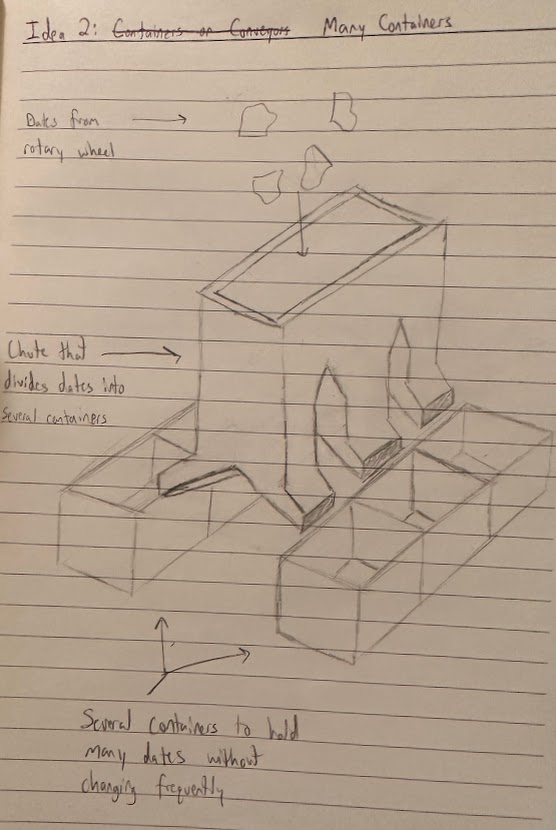 Idea 2: Containers or Conveyors Many Containers
Dates from
rotary wheel
Chute that
divides dates into
several containers
Several containers to hold
many dates without
changing frequently